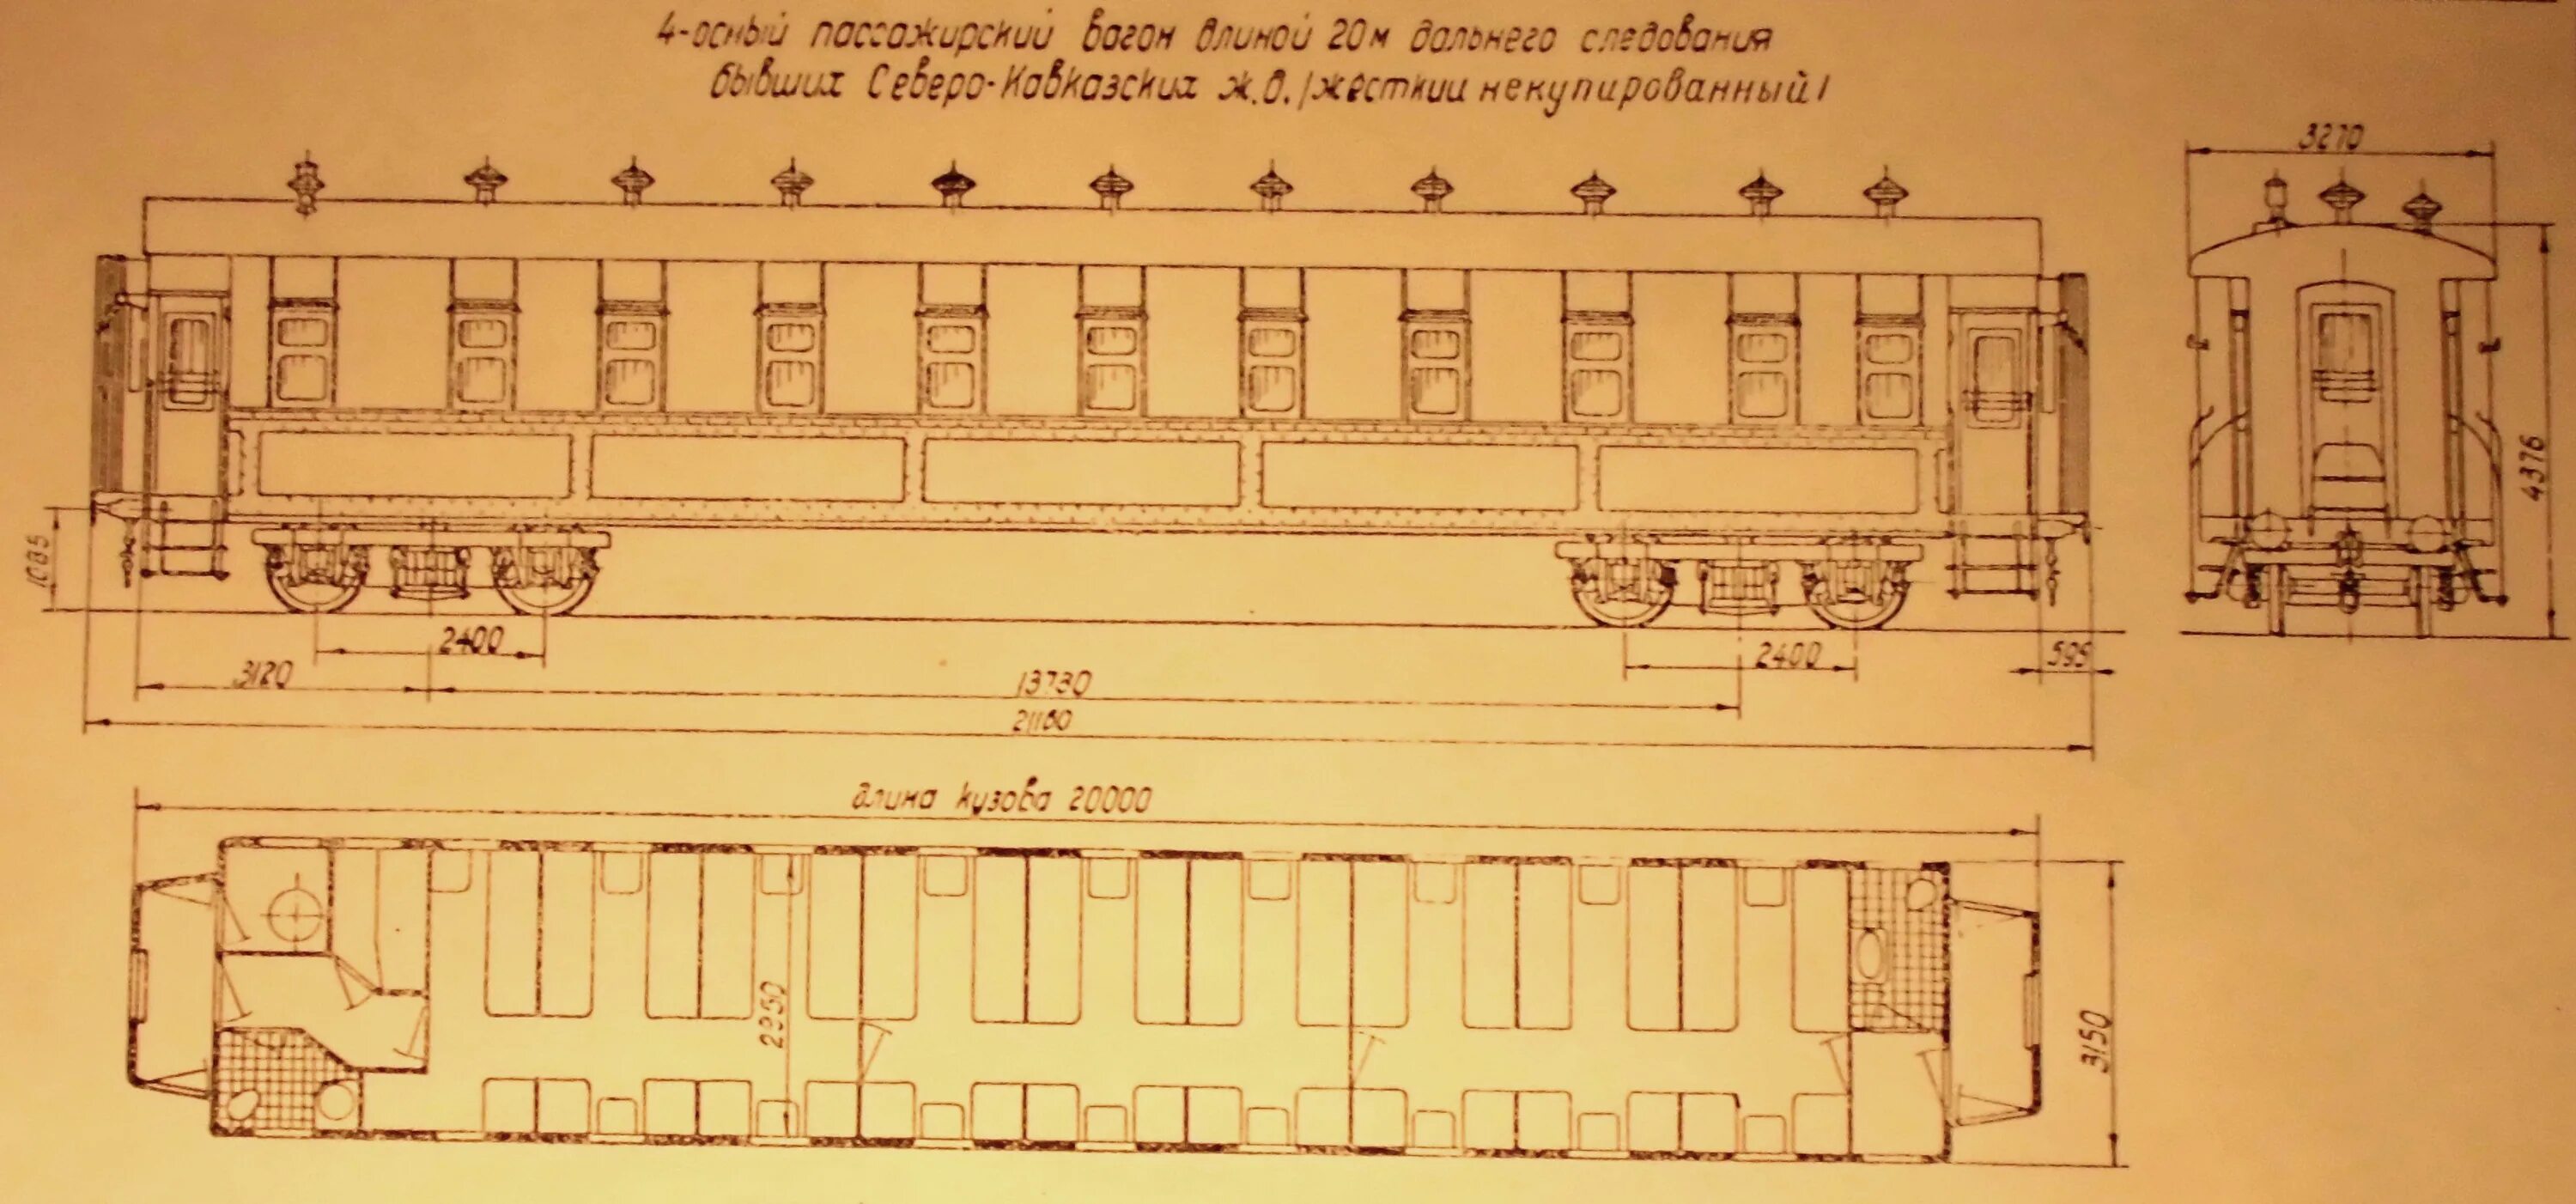 4-осный пассажирский вагон длиной 20м дальнего следования
бывших Северо-Кавказских ж.д. /жесткий некупированный/
3270
4376
1085
2400
2400
595
3120
13730
21180
длина кузова 20000
2950
3150